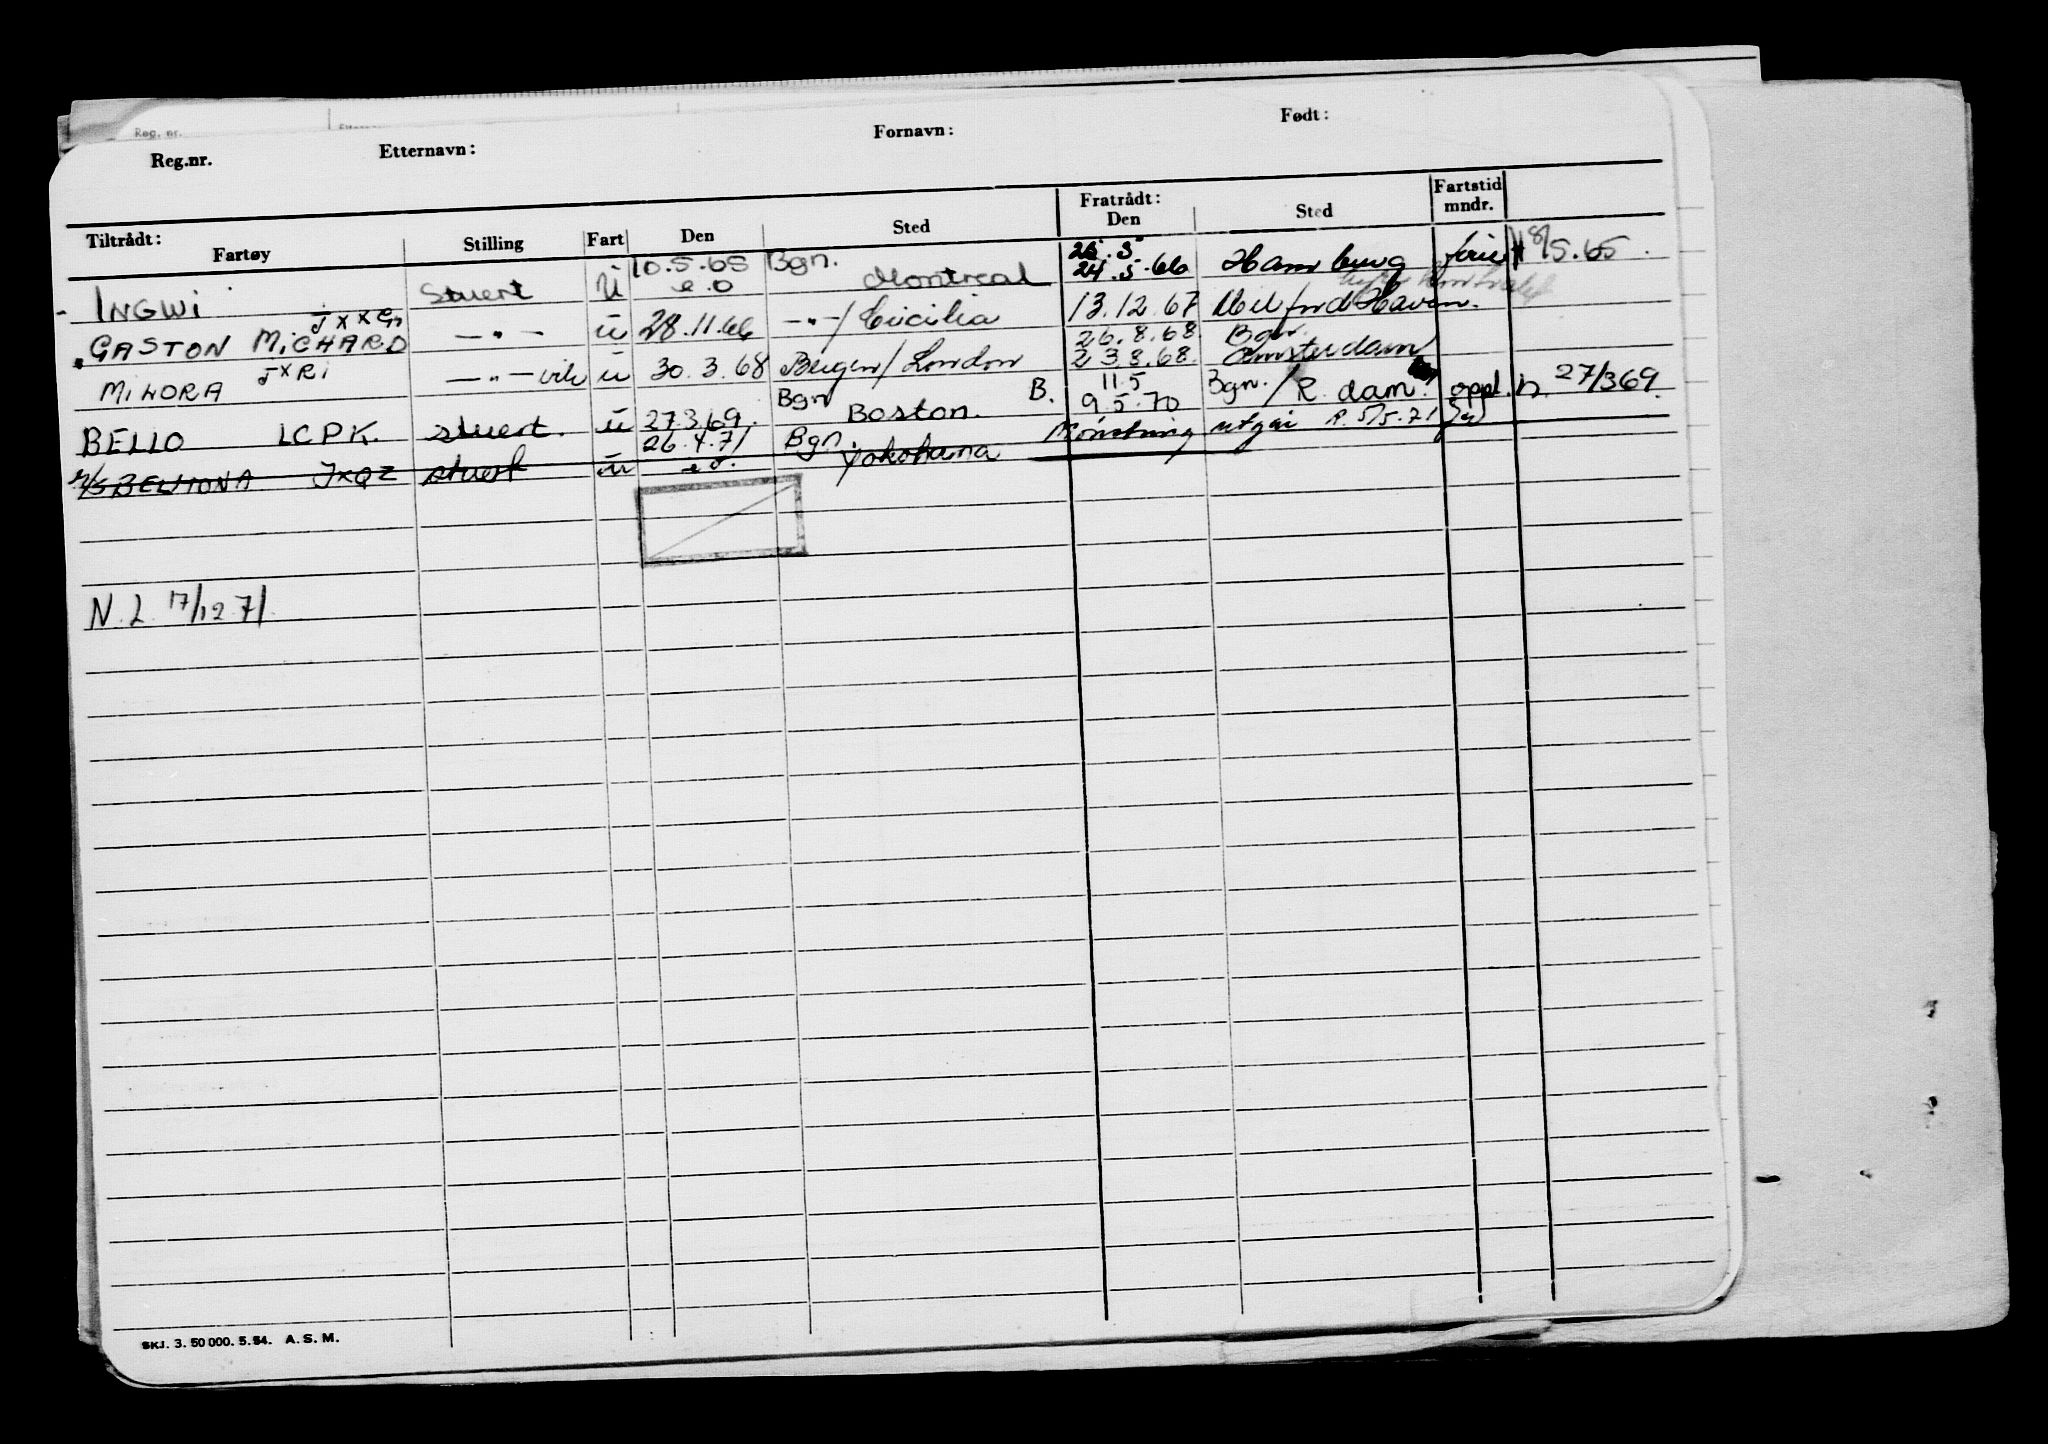 Reg. nr.
Reg.nr. Etternavn: Fornavn: Født:
Tiltrådt: Fratrådt: Fartstid
Fartøy Stilling Fart Den Sted Den Sted mndr.
10.5.65 Bgn. 26.5
INGWI Stuert U e.o Montreal 24.5.66 Hamburg ferie 18/5.65.
JXXG
GASTON MICHARD —"— ū 28.11.66 —"—/ 13.12.67 Milford Haven.
26.8.68 Bgn.
MILORA JXRI —"— vik ū 30.3.68 Bergen/London 23.8.68. Amsterdam
Bgn B. 11.5 Bgn./R.dam.
BELLO LCPK. stuert. ū 27369. Boston. 9.5.70 oppl. h. 27/369.
26.4.71 Bgn. Mønstring utgår R. 5/5.71
M/S BELMONA JXQZ stuert ū e.o. Yokohama
N.L. 17/12.71.
SKJ. 3. 50 000. 5. 54. A. S. M.